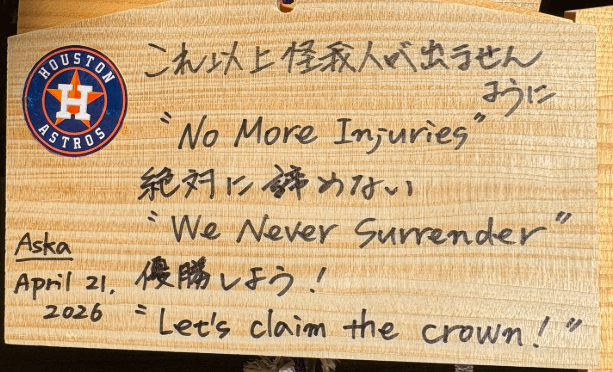 HOUSTON
ASTROS
H
これ以上怪我人が出ません
ように
"No More Injuries"
絶対に諦めない
"We Never Surrender"
優勝しよう!
"Let's claim the crown!"
Aska
April 21,
2026